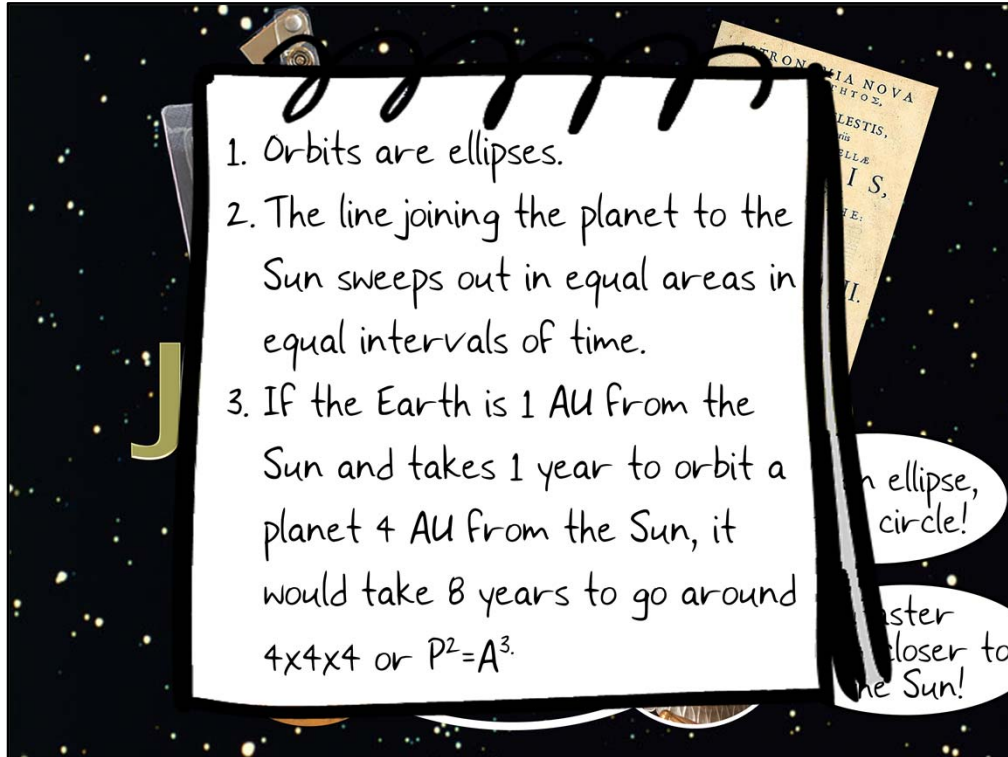 ASTRONOMIA NOVA
1. Orbits are ellipses.
2. The line joining the planet to the
Sun sweeps out in equal areas in
equal intervals of time.
3. If the Earth is 1 AU from the
Sun and takes 1 year to orbit a
planet 4 AU from the Sun, it
would take 8 years to go around
4x4x4 or P²=A³.
ellipse,
circle!
closer to
Sun!